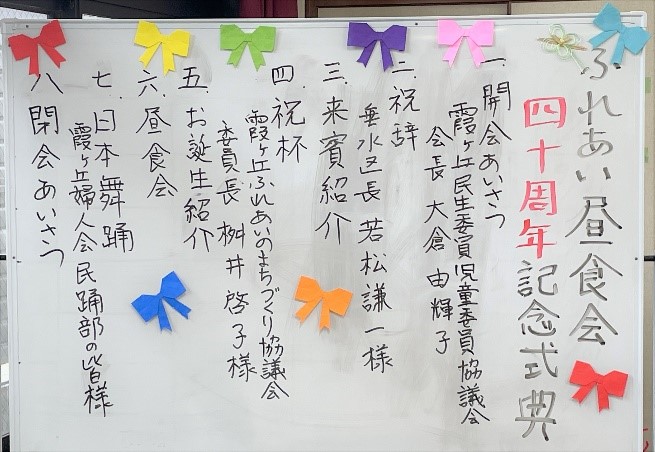 ふれあい昼食会
四十周年記念式典
一、開会あいさつ
霞ヶ丘民生委員児童委員協議会
会長 大倉 由輝子
二、祝辞
垂水区長 若松謙一様
三、来賓紹介
四、祝杯
霞ヶ丘ふれあいのまちづくり協議会
委員長 桝井 啓子様
五、お誕生紹介
六、昼食会
七、日本舞踊
霞ヶ丘婦人会民踊部の皆様
八、閉会あいさつ